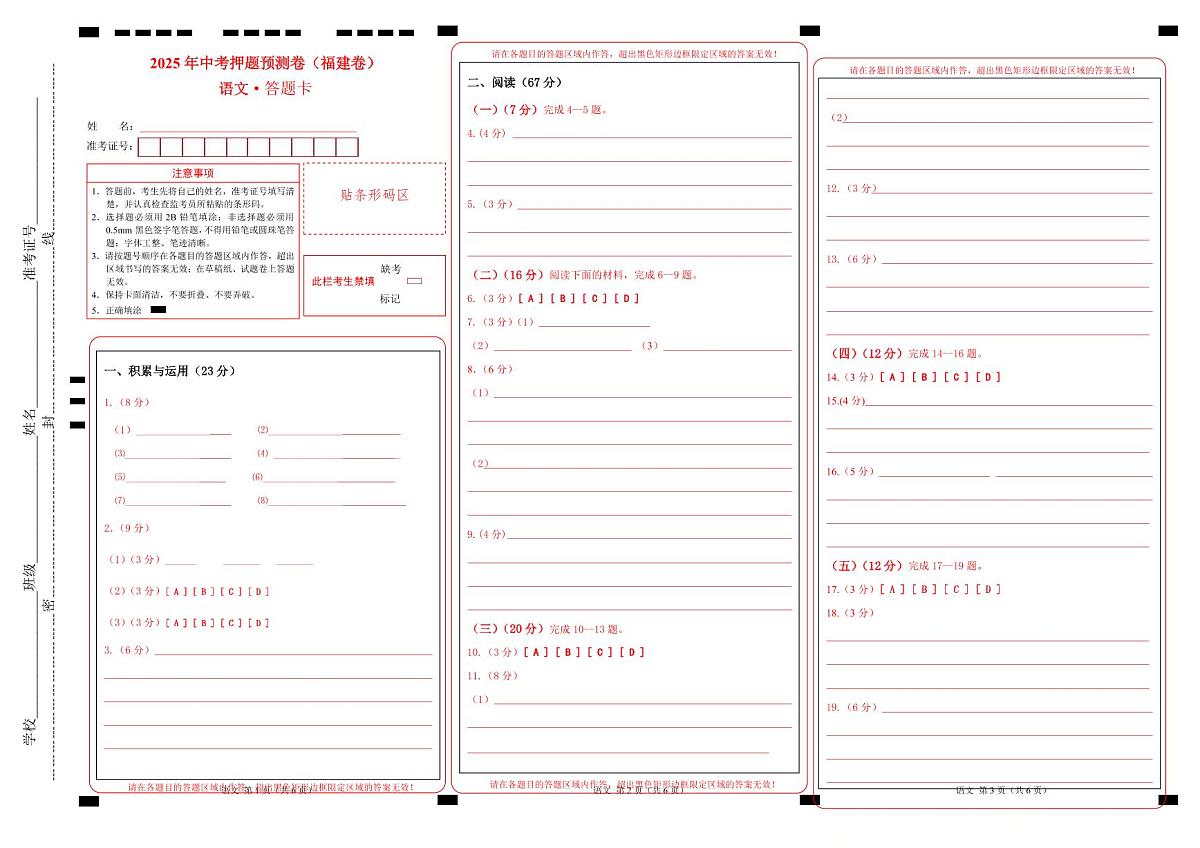 学校 班级 姓名 准考证号
密 封 线
2025年中考押题预测卷（福建卷）
语文·答题卡
姓 名：
准考证号:
注意事项
1．答题前，考生先将自己的姓名，准考证号填写清
楚，并认真检查监考员所粘贴的条形码。
2．选择题必须用2B铅笔填涂；非选择题必须用
0.5mm黑色签字笔答题，不得用铅笔或圆珠笔答
题；字体工整、笔迹清晰。
3．请按题号顺序在各题目的答题区域内作答，超出
区域书写的答案无效；在草稿纸、试题卷上答题
无效。
4．保持卡面清洁，不要折叠、不要弄破。
5．正确填涂
贴条形码区
此栏考生禁填
缺考
标记
一、积累与运用（23分）
1.（8分）
（1） (2)
(3) (4)
(5) (6)
(7) (8)
2.（9分）
（1）（3分）
（2）（3分）[ A ] [ B ] [ C ] [ D ]
（3）（3分）[ A ] [ B ] [ C ] [ D ]
3.（6分）
请在各题目的答题区域内作答，超出黑色矩形边框限定区域的答案无效！
请在各题目的答题区域内作答，超出黑色矩形边框限定区域的答案无效！
二、阅读（67分）
（一）（7分）完成4—5题。
4.(4分)
5.（3分）
（二）（16分）阅读下面的材料，完成6—9题。
6.（3分）[ A ] [ B ] [ C ] [ D ]
7.（3分）（1）
（2） （3）
8.（6分）
（1）
（2）
9.(4分)
（三）（20分）完成10—13题。
10.（3分）[ A ] [ B ] [ C ] [ D ]
11.（8分）
（1）
请在各题目的答题区域内作答，超出黑色矩形边框限定区域的答案无效！
请在各题目的答题区域内作答，超出黑色矩形边框限定区域的答案无效！
（2）
12.（3分）
13.（6分）
（四）（12分）完成14—16题。
14.（3分）[ A ] [ B ] [ C ] [ D ]
15.(4分)
16.（5分）
（五）（12分）完成17—19题。
17.（3分）[ A ] [ B ] [ C ] [ D ]
18.（3分）
19.（6分）
语文 第3页（共6页）